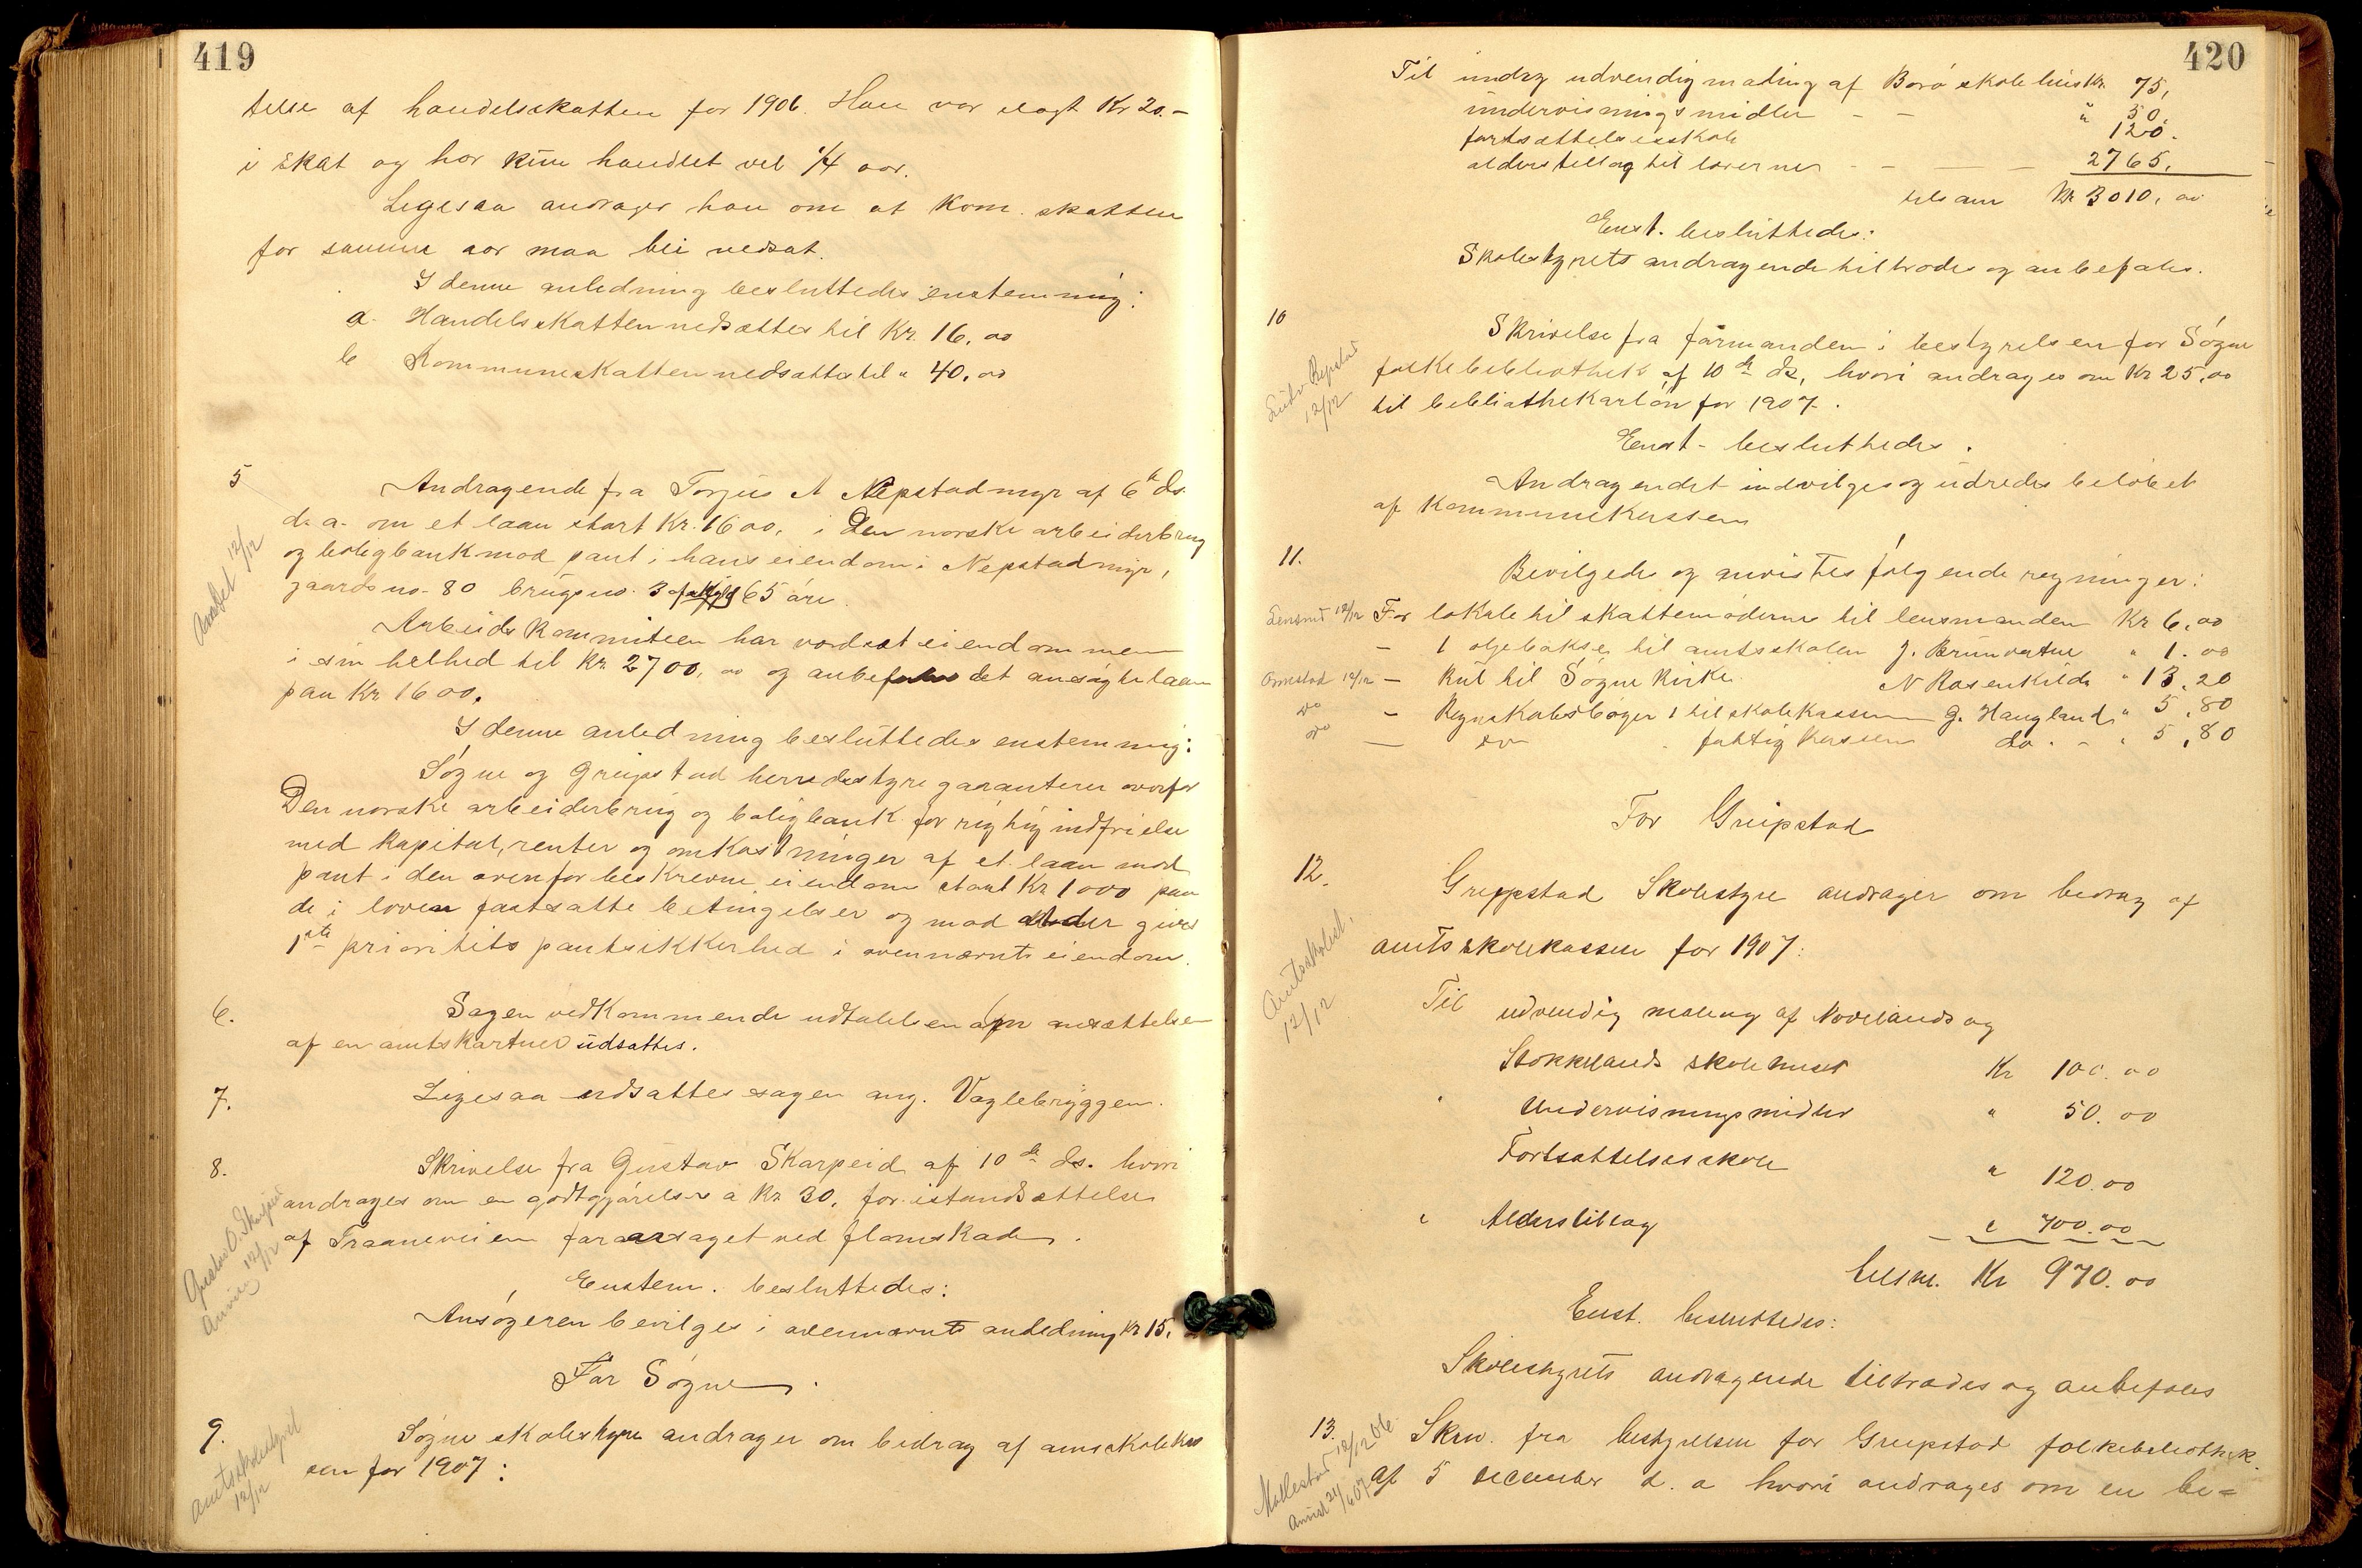 419
telse af handelsskatten for 1906. Han var ilagt Kr 20.-
i skat og har kun handlet vel 1/4 aar.
Ligesaa andrager han om at kom. skatten
for samme aar maa bli nedsat.
I denne anledning besluttedes enstemmig:
a. Handelsskatten nedsættes til Kr. 16,00
b Kommuneskatten nedsættes til " 40,00
5
Andragende fra Torjus A Nepstadmyr af 6te ds.
d. a. om et laan stort Kr. 1600, i Den norske arbeiderbrug
og boligbank mod pant i hans eiendom i Nepstadmyr,
gaards no. 80 brugs no. 3 af skyld 65 øre.
Arbeidskommiteen har værdsat eiendommen
i sin helhed til Kr 2700,00 og anbefaler det ansøgte laan
paa Kr 1600,
I denne anledning besluttedes enstemmig:
Søgne og Greipstad herredsstyre garanterer overfor
Den norske arbeiderbrug og boligbank for rigtig indfrielse
med kapital, renter og omkostninger af et laan mod
pant i den ovenfor beskrevne eiendom stort Kr 1000 paa
de i loven fastsatte betingelser og mod at der gives
1ste prioritets pantsikkerhed i ovennævnte eiendom.
6.
Sagen vedkommende udtalelsen om ansættelse
af en amtsgartner udsattes.
7.
Ligesaa udsattes sagen ang. Vaglebryggen.
8.
Skrivelse fra Gustav Skarpeid af 10de ds. hvori
andrages om en godtgjørelse a Kr 30, for istandsættelse
af Traaneveien foraarsaget ved flomskade.
Enstem. besluttedes:
Ansøgeren bevilges i ovennævnte anledning Kr 15,
For Søgne.
9.
Amtsskolestyret
12/12
Søgne skolestyre andrager om bidrag af amsskolekas
sen for 1907:
420
Til indv. og udvendig maling af Borø skolehus Kr. 75,
undervisningsmidler - - " 50.
fortsættelsesskole 120.
alderstillæg til lærerne - - - 2765,
tilsam Kr 3010,00
Enst. besluttedes:
Skolestyrets andragende tiltrædes og anbefales.
10
12/12
Skrivelse fra formanden i bestyrelsen for Søgne
folkebibliothek af 10de ds, hvori andrages om Kr 25,00
til bibliothekarløn for 1907.
Enst. besluttedes.
Andragendet indvilges og udredes beløbet
af Kommunekassen
11.
Bevilgedes og anvistes følgende regninger:
Lensmd 12/12 For lokale til skattemøderne til lensmanden Kr 6,00
- 1 oljebøkse til amtsskolen J. Brunvatne " 1.00
12/12 - Kul til Søgne kirke. N Rosenkilde " 13,20
do - Regnskabsbøger 1 til skolekassen G. Haugland " 5,80
do - do fattigkassen do. - " 5,80
For Greipstad
12.
Amtsskolest.
12/12
Greipstad Skolestyre andrager om bidrag af
amtsskolekassen for 1907:
Til udvendig maling af Novelands og
Stokkelands skolehuse Kr 100.00
" Undervisningsmidler " 50.00
Fortsættelsesskole " 120.00
" Alderstillæg " 700.00
tilsm. Kr 970.00
Enst. besluttedes:
Skolestyrets andragende tiltrædes og anbefales
13.
Skriv. fra bestyrelsen for Greipstad folkebibliothek.
af 5 december d. a hvori andrages om en be=